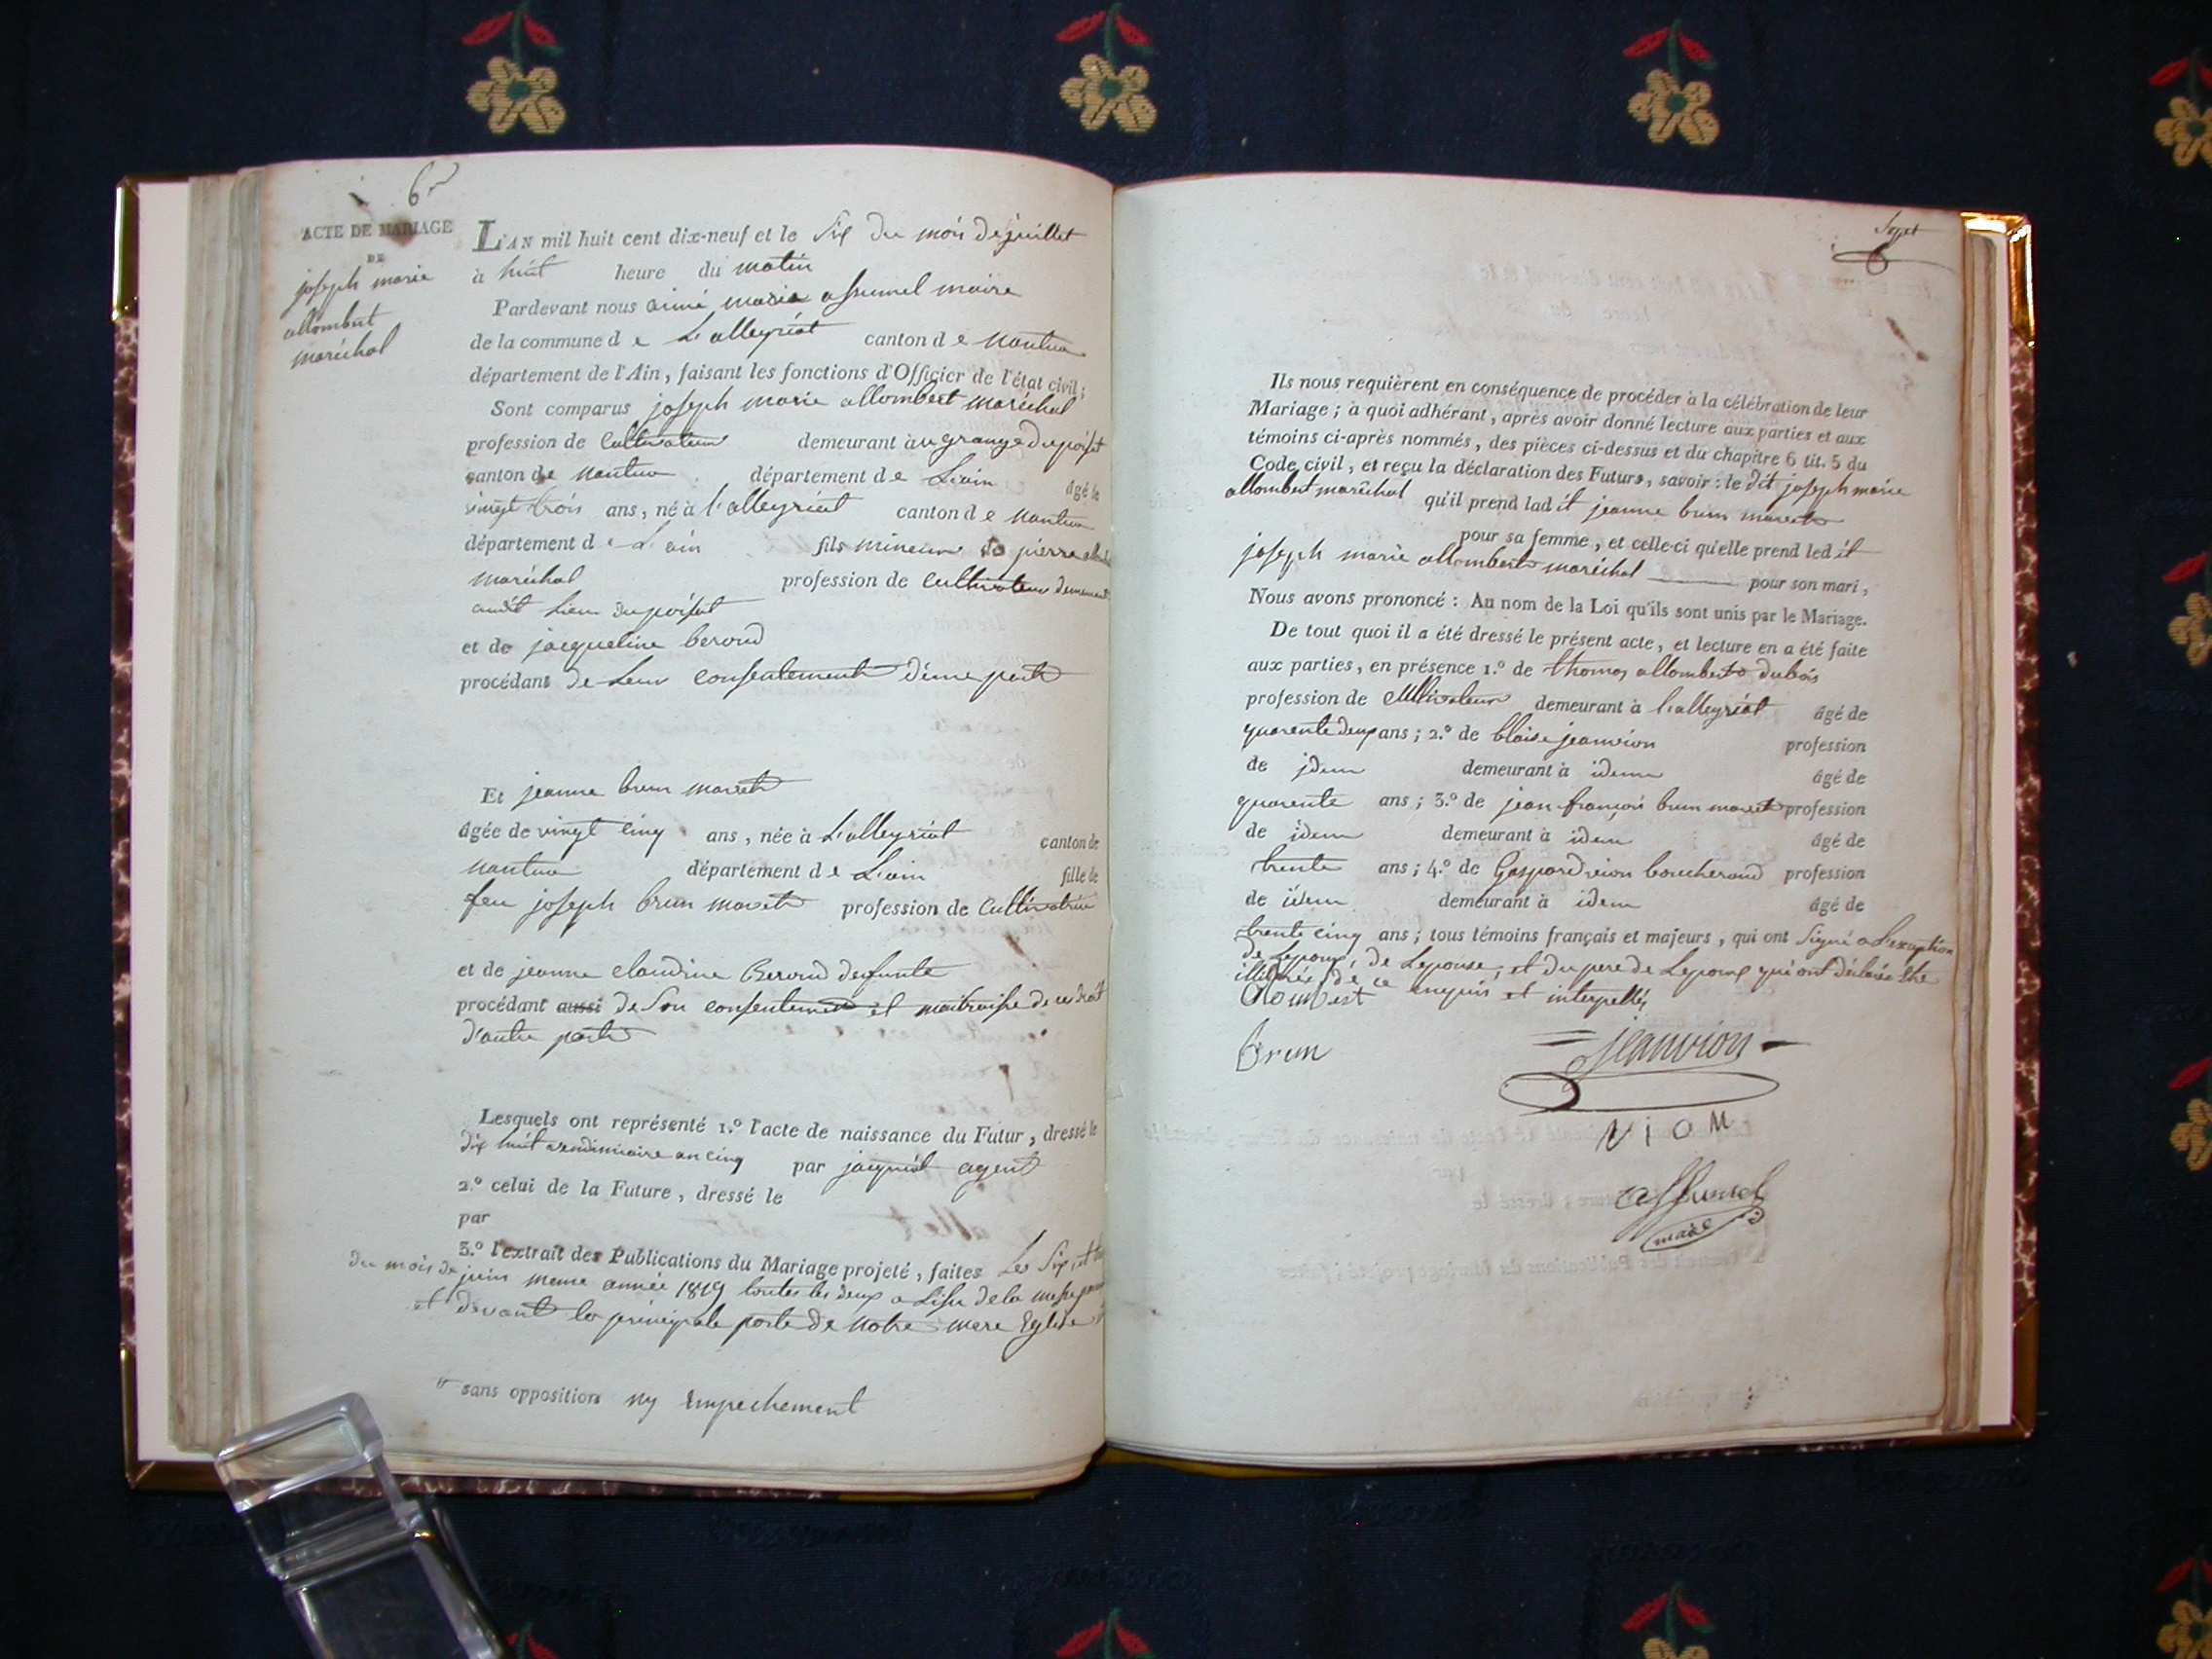 6
ACTE DE MARIAGE
DE
joseph marie
allombert
maréchal
L'AN mil huit cent dix-neuf et le Six du mois de juillet
à huit heure du matin
Pardevant nous aimé marie assumel maire
de la commune d e L'alleyriat canton d e nantua
département de l'Ain, faisant les fonctions d'Officier de l'état civil;
Sont comparus joseph marie allombert maréchal
profession de Cultivateur demeurant à grange du poizat
canton de nantua département d e L'ain âgé de
vingt trois ans, né à l'alleyriat canton d e nantua
département d e L'ain fils mineur de pierre
maréchal profession de cultivateur demeurant
audit Lieu du poizat
et de jacqueline beroud
procédant de Leur consentement d'une part
Et jeanne brun maret
âgée de vingt cinq ans, née à L'alleyriat canton de
nantua département d e L'ain fille de
feu joseph brun maret profession de Cultivatrice
et de jeanne claudine Beroud defunte
procédant aussi de Son consentement et maitraise de ce droit
d'autre part
Lesquels ont représenté 1.º l'acte de naissance du Futur, dressé le
dix huit vendimiaire an cinq par jacquiot agent
2.º celui de la Future, dressé le
par
3.º l'extrait des Publications du Mariage projeté, faites Les Six et
du mois de juin meme année 1819 toutes les deux a L'issu de la messe
et devant la principale porte de notre mere Eglise
sans opposition ny Empechement
Ils nous requièrent en conséquence de procéder à la célébration de leur
Mariage; à quoi adhérant, après avoir donné lecture aux parties et aux
témoins ci-après nommés, des pièces ci-dessus et du chapitre 6 tit. 5 du
Code civil, et reçu la déclaration des Futurs, savoir: le dit joseph marie
allombert maréchal qu'il prend lad it jeanne brun maret
pour sa femme, et celle-ci qu'elle prend led it
joseph marie allombert maréchal pour son mari,
Nous avons prononcé: Au nom de la Loi qu'ils sont unis par le Mariage.
De tout quoi il a été dressé le présent acte, et lecture en a été faite
aux parties, en présence 1.º de thomas allombert dubois
profession de cultivateur demeurant à l'alleyriat âgé de
quarente deux ans; 2.º de blaise jeanvion profession
de idem demeurant à idem âgé de
quarente ans; 3.º de jean françois brun maret profession
de idem demeurant à idem âgé de
trente ans; 4.º de Gaspard vion boucheroud profession
de idem demeurant à idem âgé de
trente cinq ans; tous témoins français et majeurs, qui ont Signé a L'exception
de Lepoux, de Lepouse, et du pere de Lepoux qui ont déclarés etre
illitérés de ce enquis et interpellés
alombert
Brun
jeanvion
viom
assumel
maire